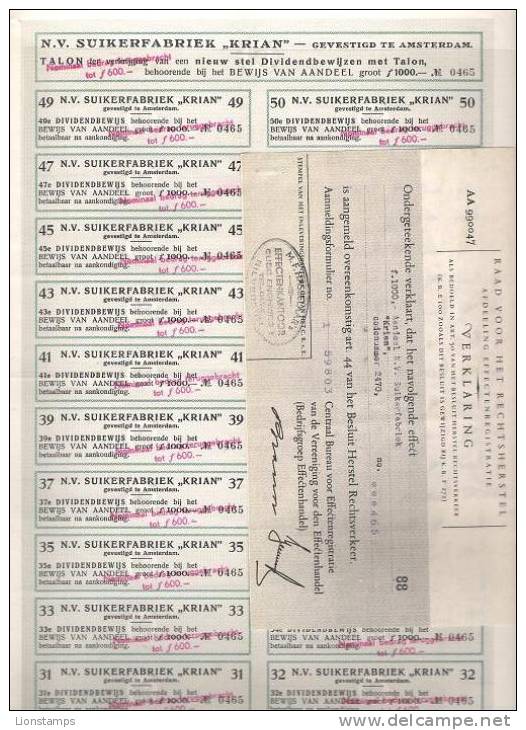 N.V. SUIKERFABRIEK „KRIAN" — GEVESTIGD TE AMSTERDAM.
TALON ter verkrijging van een nieuw stel Dividendbewijzen met Talon,
behoorende bij het BEWIJS VAN AANDEEL groot f 1000.— № 0465
Nominaal bedrag teruggebracht
tot f 600.—
49 N.V. SUIKERFABRIEK „KRIAN" 49
gevestigd te Amsterdam.
49e DIVIDENDBEWIJS behoorende bij het
BEWIJS VAN AANDEEL groot f 1000.— № 0465
betaalbaar na aankondiging.
tot f 600.—
50 N.V. SUIKERFABRIEK „KRIAN" 50
gevestigd te Amsterdam.
50e DIVIDENDBEWIJS behoorende bij het
BEWIJS VAN AANDEEL groot f 1000.— № 0465
betaalbaar na aankondiging.
tot f 600.—
47 N.V. SUIKERFABRIEK „KRIAN" 47
gevestigd te Amsterdam.
47e DIVIDENDBEWIJS behoorende bij het
BEWIJS VAN AANDEEL groot f 1000.— № 0465
betaalbaar na aankondiging.
tot f 600.—
45 N.V. SUIKERFABRIEK „KRIAN" 45
gevestigd te Amsterdam.
45e DIVIDENDBEWIJS behoorende bij het
BEWIJS VAN AANDEEL groot f 1000.— № 0465
betaalbaar na aankondiging.
tot f 600.—
43 N.V. SUIKERFABRIEK „KRIAN" 43
gevestigd te Amsterdam.
43e DIVIDENDBEWIJS behoorende bij het
BEWIJS VAN AANDEEL groot f 1000.— № 0465
betaalbaar na aankondiging.
tot f 600.—
41 N.V. SUIKERFABRIEK „KRIAN" 41
gevestigd te Amsterdam.
41e DIVIDENDBEWIJS behoorende bij het
BEWIJS VAN AANDEEL groot f 1000.— № 0465
betaalbaar na aankondiging.
tot f 600.—
39 N.V. SUIKERFABRIEK „KRIAN" 39
gevestigd te Amsterdam.
39e DIVIDENDBEWIJS behoorende bij het
BEWIJS VAN AANDEEL groot f 1000.— № 0465
betaalbaar na aankondiging.
tot f 600.—
37 N.V. SUIKERFABRIEK „KRIAN" 37
gevestigd te Amsterdam.
37e DIVIDENDBEWIJS behoorende bij het
BEWIJS VAN AANDEEL groot f 1000.— № 0465
betaalbaar na aankondiging.
tot f 600.—
35 N.V. SUIKERFABRIEK „KRIAN" 35
gevestigd te Amsterdam.
35e DIVIDENDBEWIJS behoorende bij het
BEWIJS VAN AANDEEL groot f 1000.— № 0465
betaalbaar na aankondiging.
tot f 600.—
33 N.V. SUIKERFABRIEK „KRIAN" 33
gevestigd te Amsterdam.
33e DIVIDENDBEWIJS behoorende bij het
BEWIJS VAN AANDEEL groot f 1000.— № 0465
betaalbaar na aankondiging.
tot f 600.—
BEWIJS VAN AANDEEL groot f 1000.— № 0465
betaalbaar na aankondiging.
tot f 600.—
31 N.V. SUIKERFABRIEK „KRIAN" 31
gevestigd te Amsterdam.
31e DIVIDENDBEWIJS behoorende bij het
BEWIJS VAN AANDEEL groot f 1000.— № 0465
32 N.V. SUIKERFABRIEK „KRIAN" 32
gevestigd te Amsterdam.
32e DIVIDENDBEWIJS behoorende bij het
BEWIJS VAN AANDEEL groot f 1000.— № 0465
AA 990047
RAAD VOOR HET RECHTSHERSTEL
AFDELING EFFECTENREGISTRATIE
VERKLARING
ALS BEDOELD IN ART. 50 VAN HET BESLUIT HERSTEL RECHTSVERKEER
(K.B. E 100 ZOOALS DIT BESLUIT IS GEWIJZIGD BIJ K.B. F 272)
Ondergeteekende verklaart, dat het navolgende effect
f.1000,- Aandeel N.V. Suikerfabriek
"Krian", no. 000465
codenummer 2470, 88
is aangemeld overeenkomstig art. 44 van het Besluit Herstel Rechtsverkeer.
Aanmeldingsformulier no. 1 59803
Centraal Bureau voor Effectenregistratie
van de Vereeniging voor den Effectenhandel
(Bedrijfsgroep Effectenhandel)
EFFECTENKANTOOR
Lionstamps
www.delcampe.net